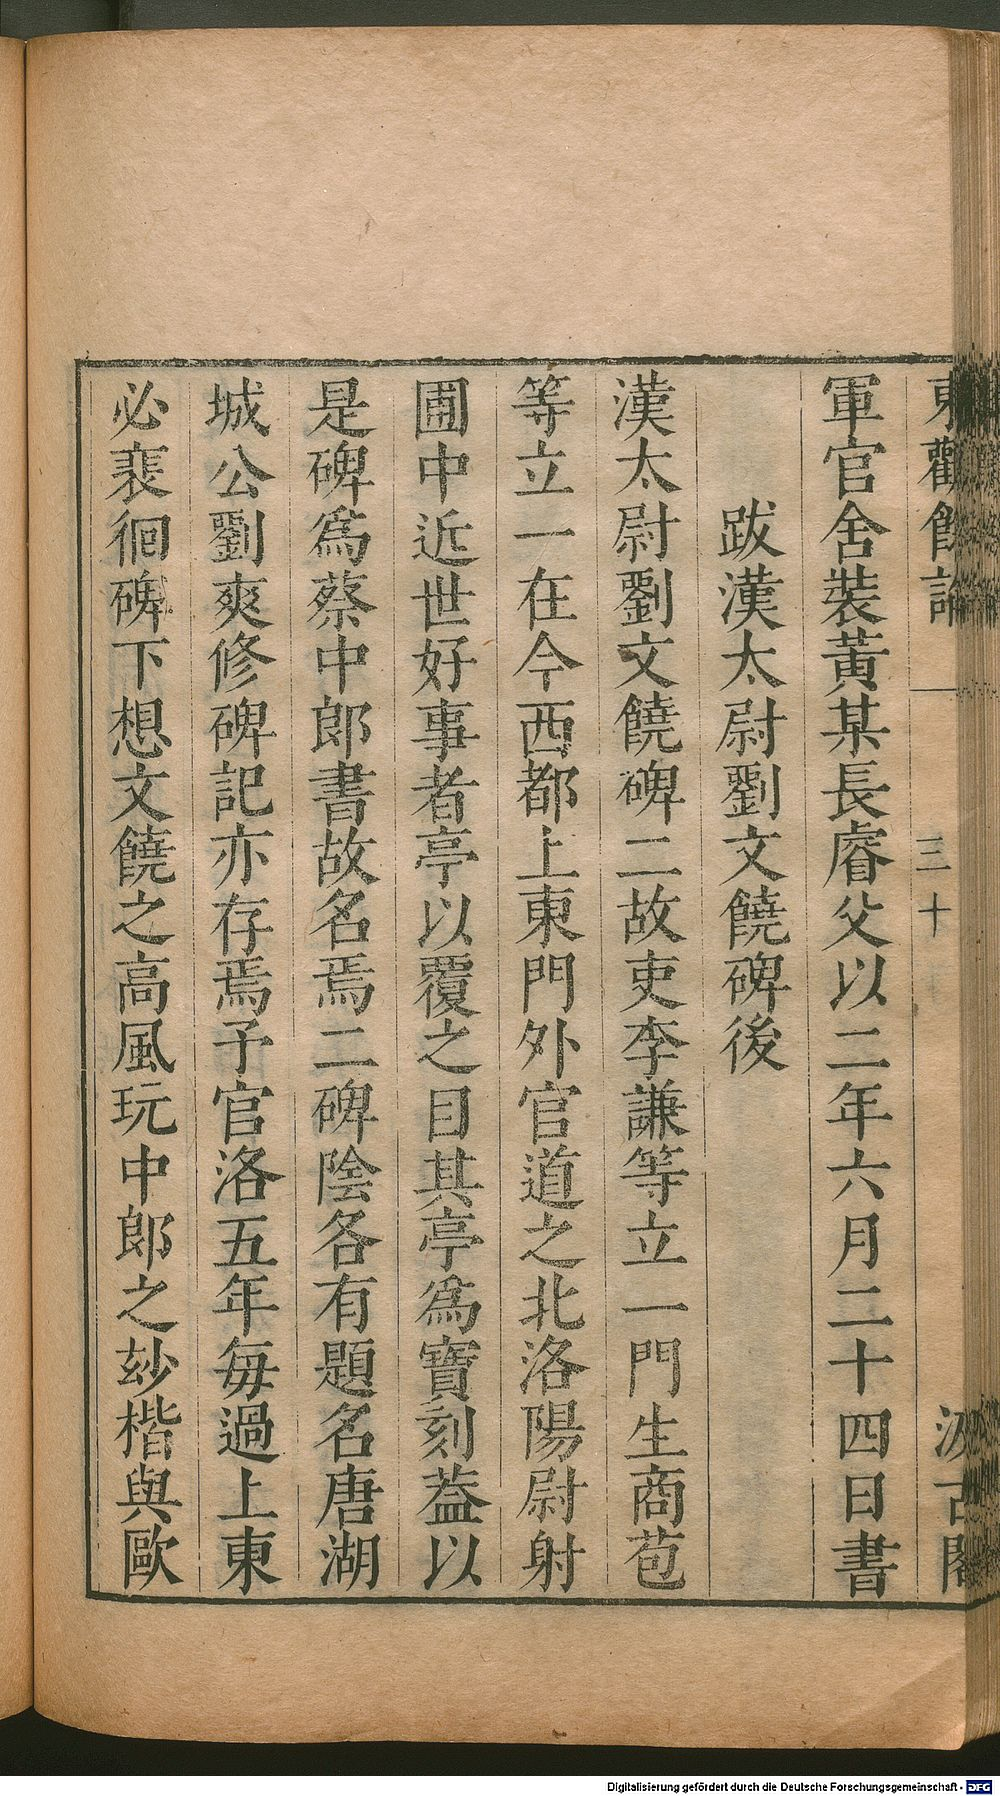 東觀餘論
三十
汲古閣
軍官舍裝黃某長睿父以二年六月二十四日書
跋漢太尉劉文饒碑後
漢太尉劉文饒碑二故吏李謙等立一門生商苞
等立一在今西都上東門外官道之北洛陽尉射
圃中近世好事者亭以覆之目其亭爲寶刻蓋以
是碑爲蔡中郎書故名焉二碑陰各有題名唐湖
城公劉爽修碑記亦存焉予官洛五年每過上東
必裴徊碑下想文饒之高風玩中郎之玅楷與歐
Digitalisierung gefördert durch die Deutsche Forschungsgemeinschaft - DFG